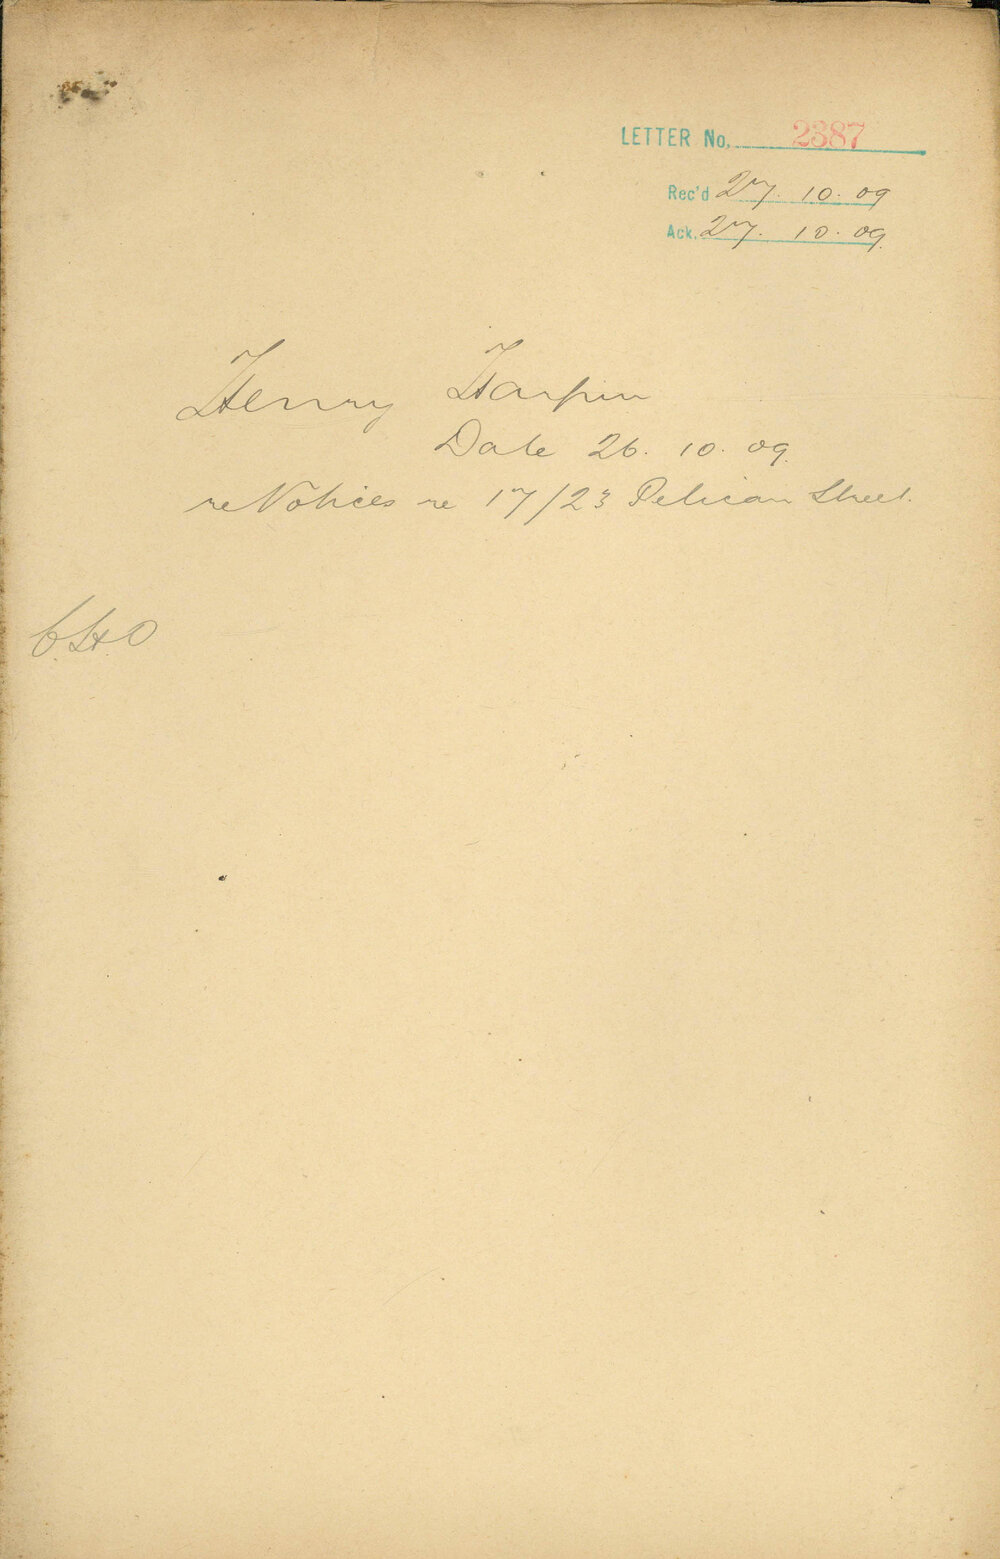 LETTER No. 2387
Rec'd 27. 10. 09
Ack. 27. 10. 09.
Henry Harpin
Date 26. 10. 09.
re Notices re 17/23 Pelican Street.
C.H.O